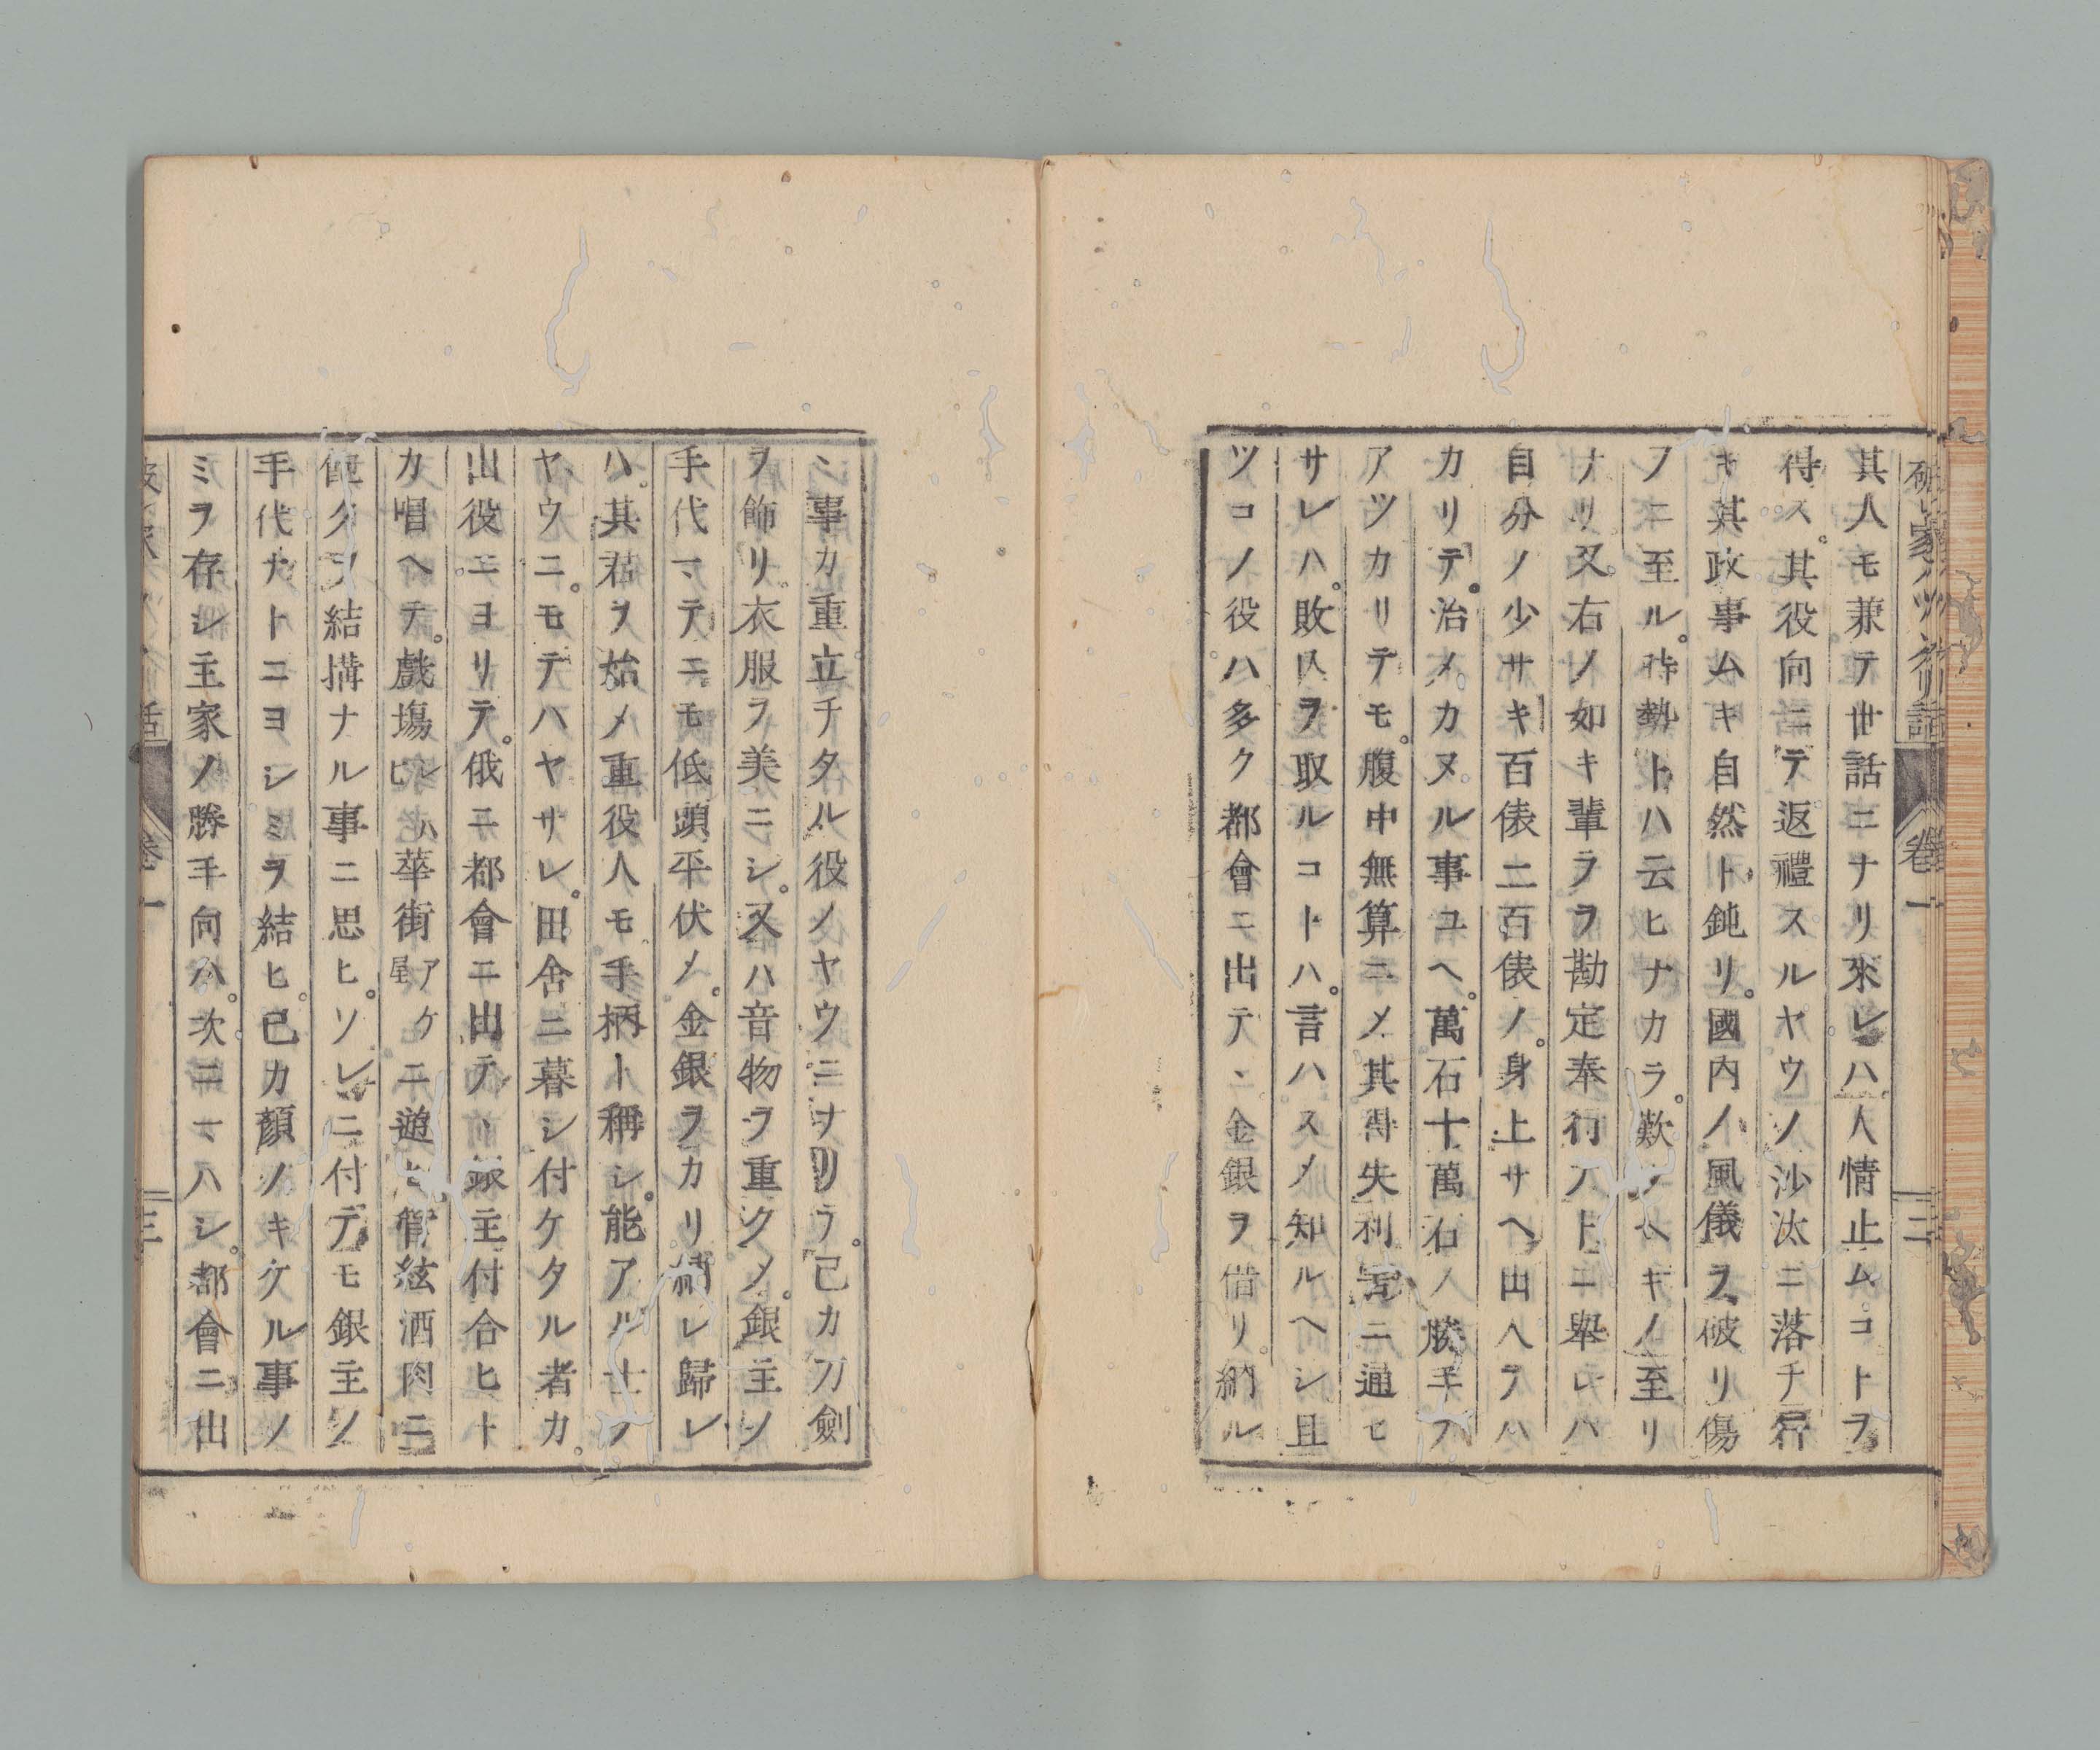 其人モ兼テ世話ニナリ來レハ人情止ムコトヲ
得ス。其役向ニテ返禮スルヤウノ沙汰ニ落チ
キ其政事ムキ自然ト鈍リ。國内ノ風儀ヲ破リ傷
フニ至ル。時勢トハ云ヒナカラ。歎クヘキノ至リ
ナリ又右ノ如キ輩ラヲ勘定奉行ナトニ舉レハ
自分ノ少サキ百俵二百俵ノ。身上サヘ出入ラハ
カリテ。治メカヌル事ユヘ。萬石十萬石ノ勝手ヲ
アツカリテモ。腹中無算ニメ其得失利害ニ通ヒ
サレハ。敗ヲ取ルコトハ。言ハスメ知ルヘシ且
ツコノ役ハ多ク都會ニ出テヽ金銀ヲ借リ。納ル
卷一 二
ミ事カ重立チタル役ノヤウニナリ
テ。己カ刀劍
ヲ飾リ。衣服ヲ美ニシ。又ハ音物ヲ重クメ。銀主ノ
手代マテニモ低頭平伏メ。金銀ヲカリ納レ歸レ
ハ。其君ヲ始メ重役人モ。手柄ト稱シ。能アル士ノ
ヤウニ。モテハヤサレ。田舍ニ暮シ付ケタル者カ。
出役ニヨリテ。俄ニ都會ニ出テヽ銀主付合ヒト
カ唱ヘテ。戲塲シハヒ華街アケ屋ニ遊ヒ管絃酒肉ニ
ノ結搆ナル事ニ思ヒ。ソレニ付テモ銀主ノ
手代ナトニヨシミヲ結ヒ。己カ顔ノキケル事ノ
ミヲ存シ主家ノ勝手向ハ。次ニマハシ。都會ニ出
卷一 三